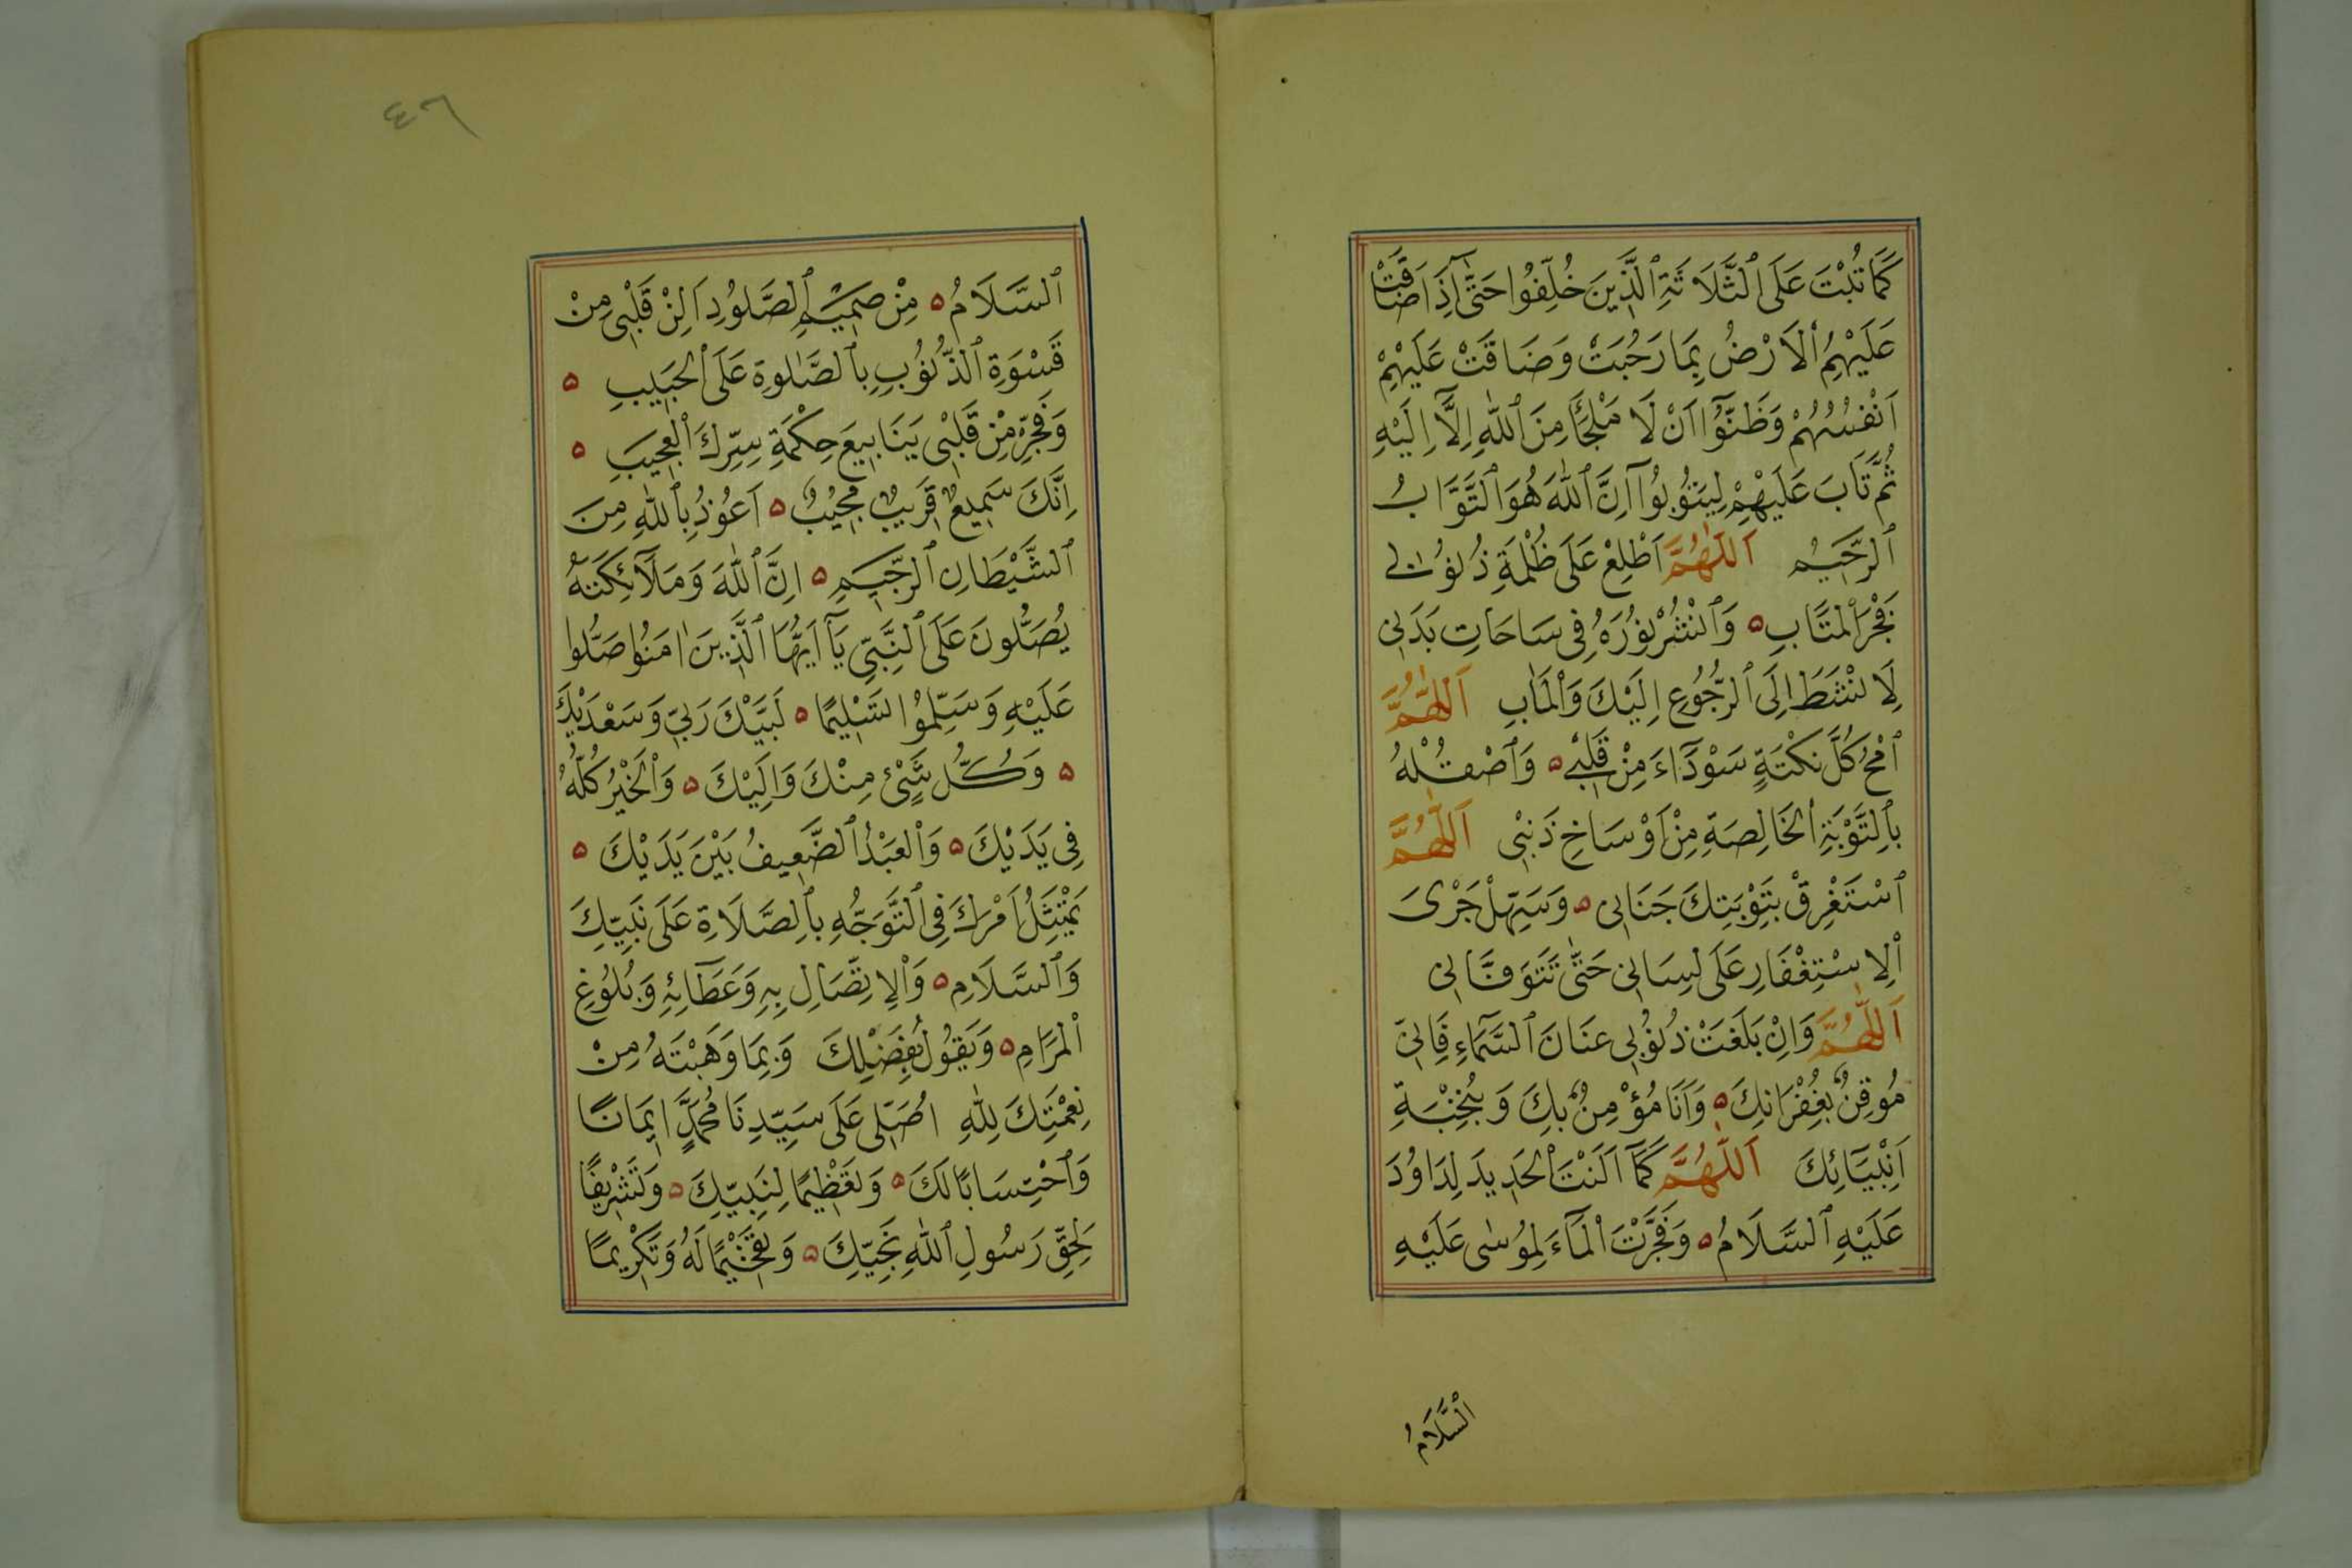 كَمَا تُبْتَ عَلَى ٱلثَّلَاثَةِ ٱلَّذِينَ خُلِّفُوا حَتَّىٰٓ اِذَا ضَاقَتْ
عَلَيْهِمُ ٱلْاَرْضُ بِمَا رَحُبَتْ وَضَاقَتْ عَلَيْهِمْ
اَنْفُسُهُمْ وَظَنُّوٓا اَنْ لَا مَلْجَأَ مِنَ ٱللّٰهِ اِلَّآ اِلَيْهِ
ثُمَّ تَابَ عَلَيْهِمْ لِيَتُوبُوٓا اِنَّ ٱللّٰهَ هُوَ ٱلتَّوَّابُ
ٱلرَّحِيمُ اَللّٰهُمَّ اَطْلِعْ عَلَى ظُلْمَةِ ذُنُوبِى
فَجْرَ ٱلْمَتَابِ ۵ وَٱنْشُرْ نُورَهُ فِى سَاحَاتِ بَدَنِى
لِاَنْشَطَ اِلَى ٱلرُّجُوعِ اِلَيْكَ وَٱلْمَاٰبِ اَللّٰهُمَّ
ٱمْحُ كُلَّ نَكْتَةٍ سَوْدَآءَ مِنْ قَلْبِى ۵ وَٱصْقُلْهُ
بِٱلتَّوْبَةِ ٱلْخَالِصَةِ مِنْ اَوْسَاخِ ذَنْبِى اَللّٰهُمَّ
ٱسْتَغْرِقْ بِتَوْبَتِكَ جَنَانِى ۵ وَسَهِّلْ جَرْىَ
ٱلْاِسْتِغْفَارِ عَلَى لِسَانِى حَتّٰى تَتَوَفَّانِى
اَللّٰهُمَّ وَاِنْ بَلَغَتْ ذُنُوبِى عَنَانَ ٱلسَّمَآءِ فَاِنِّى
مُوقِنٌ بِغُفْرَانِكَ ۵ وَاَنَا مُؤْمِنٌ بِكَ وَبِنُخْبَةِ
اَنْبِيَائِكَ اَللّٰهُمَّ كَمَآ اَلَنْتَ ٱلْحَدِيدَ لِدَاوُدَ
عَلَيْهِ ٱلسَّلَامُ ۵ وَفَجَّرْتَ ٱلْمَآءَ لِمُوسٰى عَلَيْهِ
ٱلسَّلَامُ
٤٦
ٱلسَّلَامُ ۵ مِنْ صَمِيمِ ٱلصَّلُودِ اَلِنْ قَلْبِى مِنْ
قَسْوَةِ ٱلذُّنُوبِ بِٱلصَّلٰوةِ عَلَى ٱلْحَبِيبِ ۵
وَفَجِّرْ مِنْ قَلْبِى يَنَابِيعَ حِكْمَةِ سِرِّكَ ٱلْعَجِيبِ ۵
اِنَّكَ سَمِيعٌ قَرِيبٌ مُجِيبٌ ۵ اَعُوذُ بِٱللّٰهِ مِنَ
ٱلشَّيْطَانِ ٱلرَّجِيمِ ۵ اِنَّ ٱللّٰهَ وَمَلَآئِكَتَهُ
يُصَلُّونَ عَلَى ٱلنَّبِىِّ يَآ اَيُّهَا ٱلَّذِينَ اٰمَنُوا صَلُّوا
عَلَيْهِ وَسَلِّمُوا تَسْلِيمًا ۵ لَبَّيْكَ رَبِّى وَسَعْدَيْكَ
۵ وَكُلُّ شَىْءٍ مِنْكَ وَاِلَيْكَ ۵ وَٱلْخَيْرُ كُلُّهُ
فِى يَدَيْكَ ۵ وَٱلْعَبْدُ ٱلضَّعِيفُ بَيْنَ يَدَيْكَ ۵
يَمْتَثِلُ اَمْرَكَ فِى ٱلتَّوَجُّهِ بِٱلصَّلَاةِ عَلَى نَبِيِّكَ
وَٱلسَّلَامِ ۵ وَٱلْاِتِّصَالِ بِهِ وَعَطَآئِهِ وَبُلُوغِ
ٱلْمَرَامِ ۵ وَيَقُولُ بِفَضْلِكَ وَبِمَا وَهَبْتَهُ مِنْ
نِعْمَتِكَ لِلّٰهِ اُصَلِّى عَلَى سَيِّدِنَا مُحَمَّدٍ اِيمَانًا
وَٱحْتِسَابًا لَكَ ۵ وَتَعْظِيمًا لِنَبِيِّكَ ۵ وَتَشْرِيفًا
لِحَقِّ رَسُولِ ٱللّٰهِ نَجِيِّكَ ۵ وَتَفْخِيمًا لَهُ وَتَكْرِيمًا